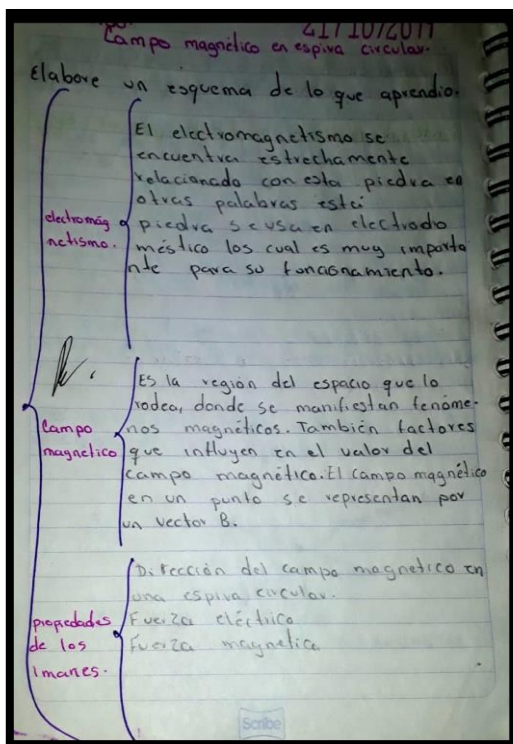 21/10/2011
Campo magnético en espiva circular.
Elabore un esquema de lo que aprendio.
electromág
netismo.
El electromagnetismo se
encuentra estrechamente
relacionado con esta piedra en
otras palabras está
piedra se usa en electrodo
méstico los cual es muy importa
nte para su funcionamiento.
Campo
magnetico
Es la región del espacio que lo
rodea, donde se manifiestan fenóme-
nos magnéticos. También factores
que influyen en el valor del
campo magnético. El campo magnético
en un punto se representan por
un vector B.
propiedades
de los
imanes.
Dirección del campo magnetico en
una espiva circular.
Fuerza eléctrica
Fuerza magnetica
Scribe